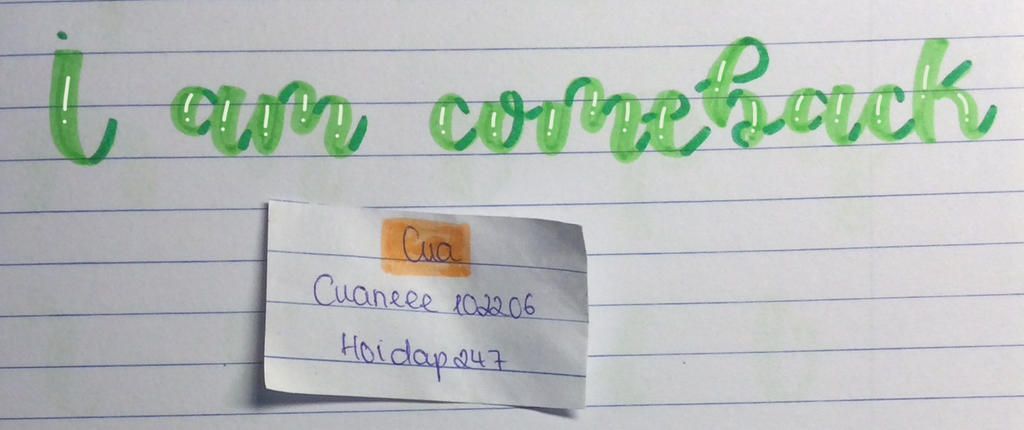 i am comeback
Cua
Cuaneee 102206
Hoidap247